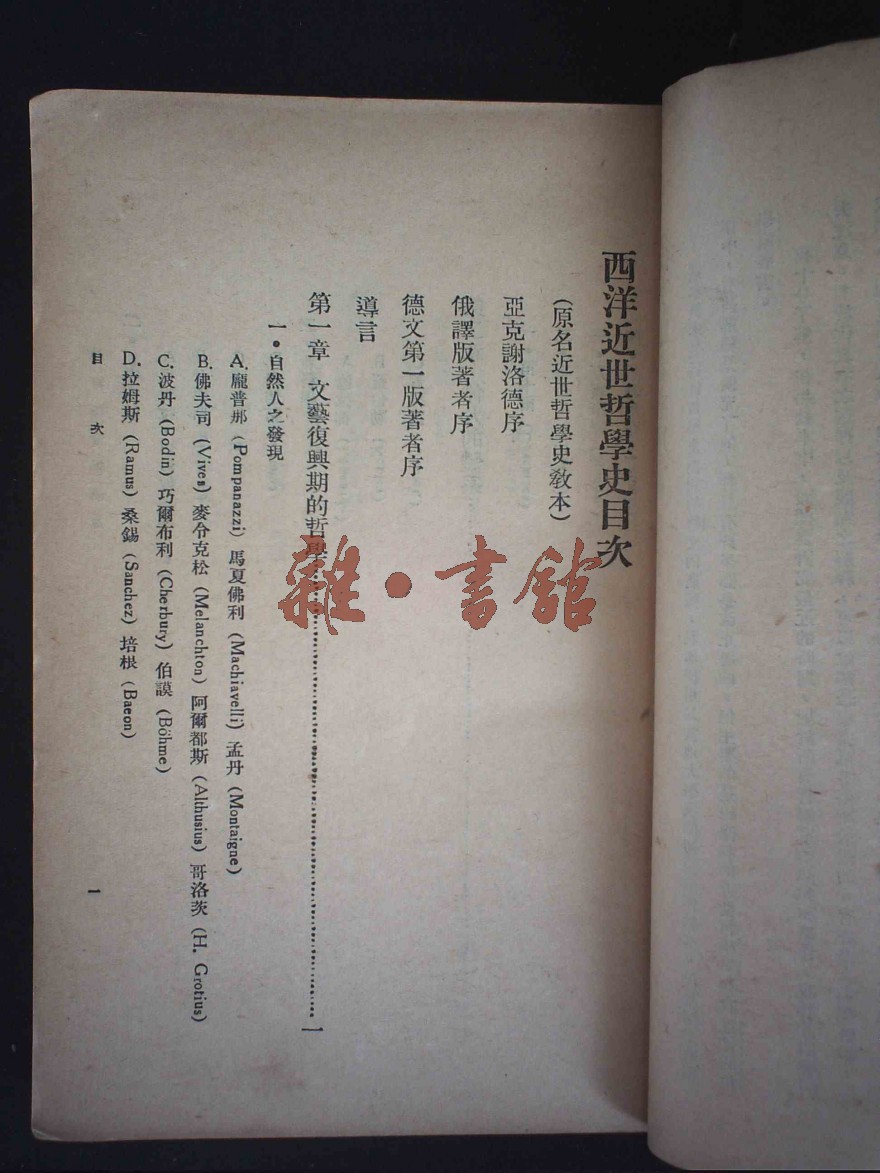 西洋近世哲學史目次
(原名近世哲學史教本)
亞克謝洛德序
俄譯版著者序
德文第一版著者序
導言
第一章 文藝復興期的哲學……………………一
一•自然人之發現
A. 龐普那 (Pompanazzi) 馬夏佛利 (Machiavelli) 孟丹 (Montaigne)
B. 佛夫司 (Vives) 麥令克松 (Melanchton) 阿爾都斯 (Althusius) 哥洛茨 (H. Grotius)
C. 波丹 (Bodin) 巧爾布利 (Cherbury) 伯謨 (Böhme)
D. 拉姆斯 (Ramus) 桑錫 (Sanchez) 培根 (Baeon)
目次 一
雜•書館